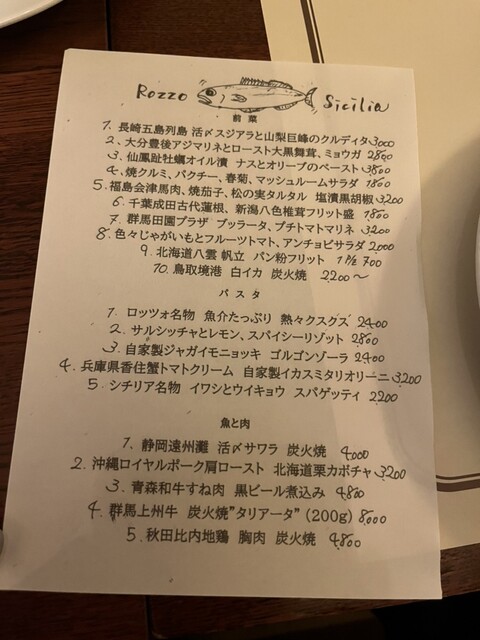 Rozzo Sicilia
前菜
1. 長崎五島列島 活〆スジアラと山梨巨峰のクルディタ 3000
2. 大分豊後アジマリネとロースト大黒舞茸、ミョウガ 2800
3. 仙鳳趾牡蠣オイル漬 ナスとオリーブのペースト 3800
4. 焼クルミ、パクチー、春菊、マッシュルームサラダ 1800
5. 福島会津馬肉、焼茄子、松の実タルタル 塩漬黒胡椒 3200
6. 千葉成田古代蓮根、新潟八色椎茸フリット盛 1800
7. 群馬田園プラザ ブッラータ、プチトマトマリネ 3200
8. 色々じゃがいもとフルーツトマト、アンチョビサラダ 2000
9. 北海道八雲 帆立 パン粉フリット 1P 700
10. 鳥取境港 白イカ 炭火焼 2200〜
パスタ
1. ロッツォ名物 魚介たっぷり 熱々クスグス 2400
2. サルシッチャとレモン、スパイシーリゾット 2800
3. 自家製ジャガイモニョッキ ゴルゴンゾーラ 2400
4. 兵庫県香住蟹トマトクリーム 自家製イカスミタリオリーニ 3200
5. シチリア名物 イワシとウイキョウ スパゲッティ 2200
魚と肉
1. 静岡遠州灘 活〆サワラ 炭火焼 4000
2. 沖縄ロイヤルポーク肩ロースト 北海道栗カボチャ 3200
3. 青森和牛すね肉 黒ビール煮込み 4800
4. 群馬上州牛 炭火焼"タリアータ" (200g) 8,000
5. 秋田比内地鶏 胸肉 炭火焼 4800